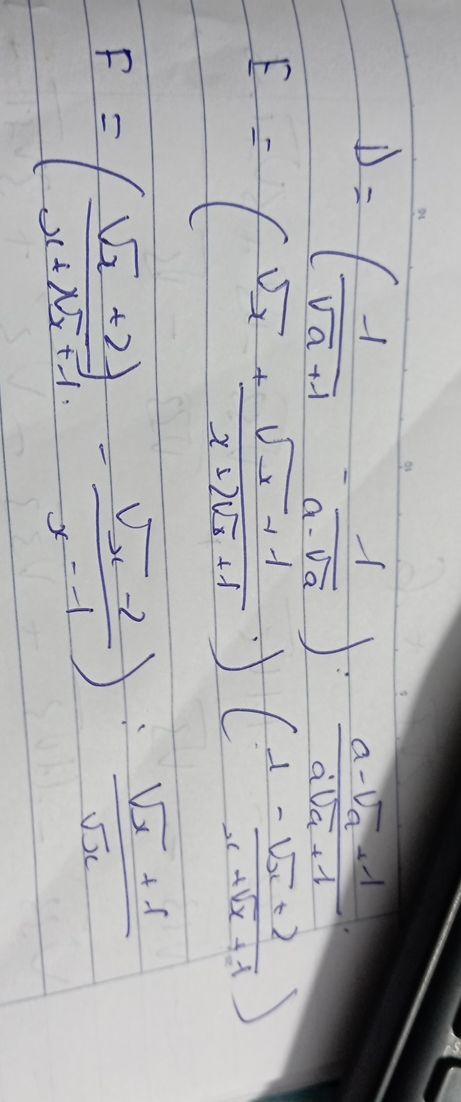 D = ( 1/(√a + 1) - 1/(a - √a) ) : (a - √a + 1)/(a√a + 1)
E = ( √x + (√x + 1)/(x + 2√x + 1) ) : ( 1 - (√x + 2)/(x + √x + 1) )
F = ( (√x + 2)/(x + 2√x + 1) - (√x - 2)/(x - 1) ) : (√x + 1)/√x